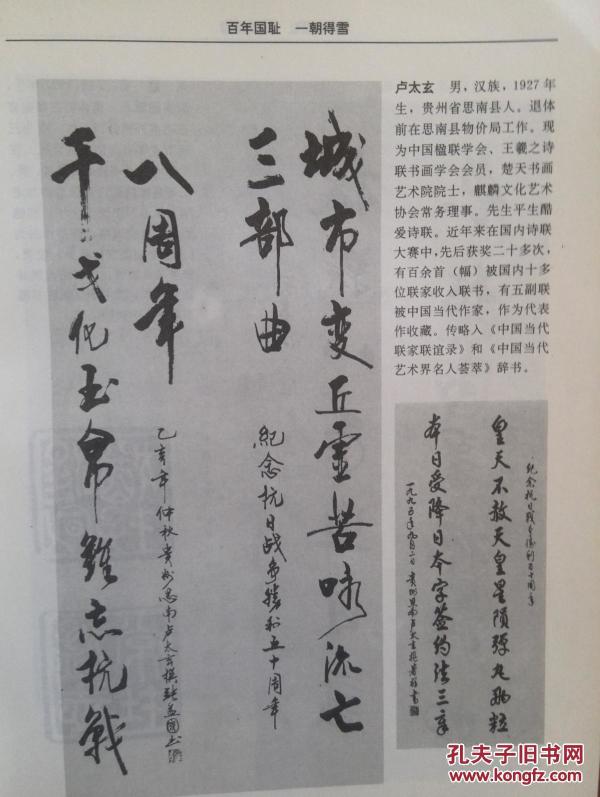 百年国耻　一朝得雪
卢太玄　男，汉族，1927年
生，贵州省思南县人。退体
前在思南县物价局工作。现
为中国楹联学会、王羲之诗
联书画学会会员，楚天书画
艺术院院士，麒麟文化艺术
协会常务理事。先生平生酷
爱诗联。近年来在国内诗联
大赛中，先后获奖二十多次，
有百余首（幅）被国内十多
位联家收入联书，有五副联
被中国当代作家，作为代表
作收藏。传略入《中国当代
联家联谊录》和《中国当代
艺术界名人荟萃》辞书。
城市变丘灵苦咏流七
三部曲
紀念抗日战争勝利五十周年
八周年
干戈化玉帛難忘抗戰
乙亥年仲秋贵州思南卢太玄撰
纪念抗日战争勝利五十周年
皇天不赦天皇星陨弹丸两粒
本日受降日本字签约法三章
一九九五年九月二日贵州思南卢太玄撰
孔夫子旧书网
www.kongfz.com